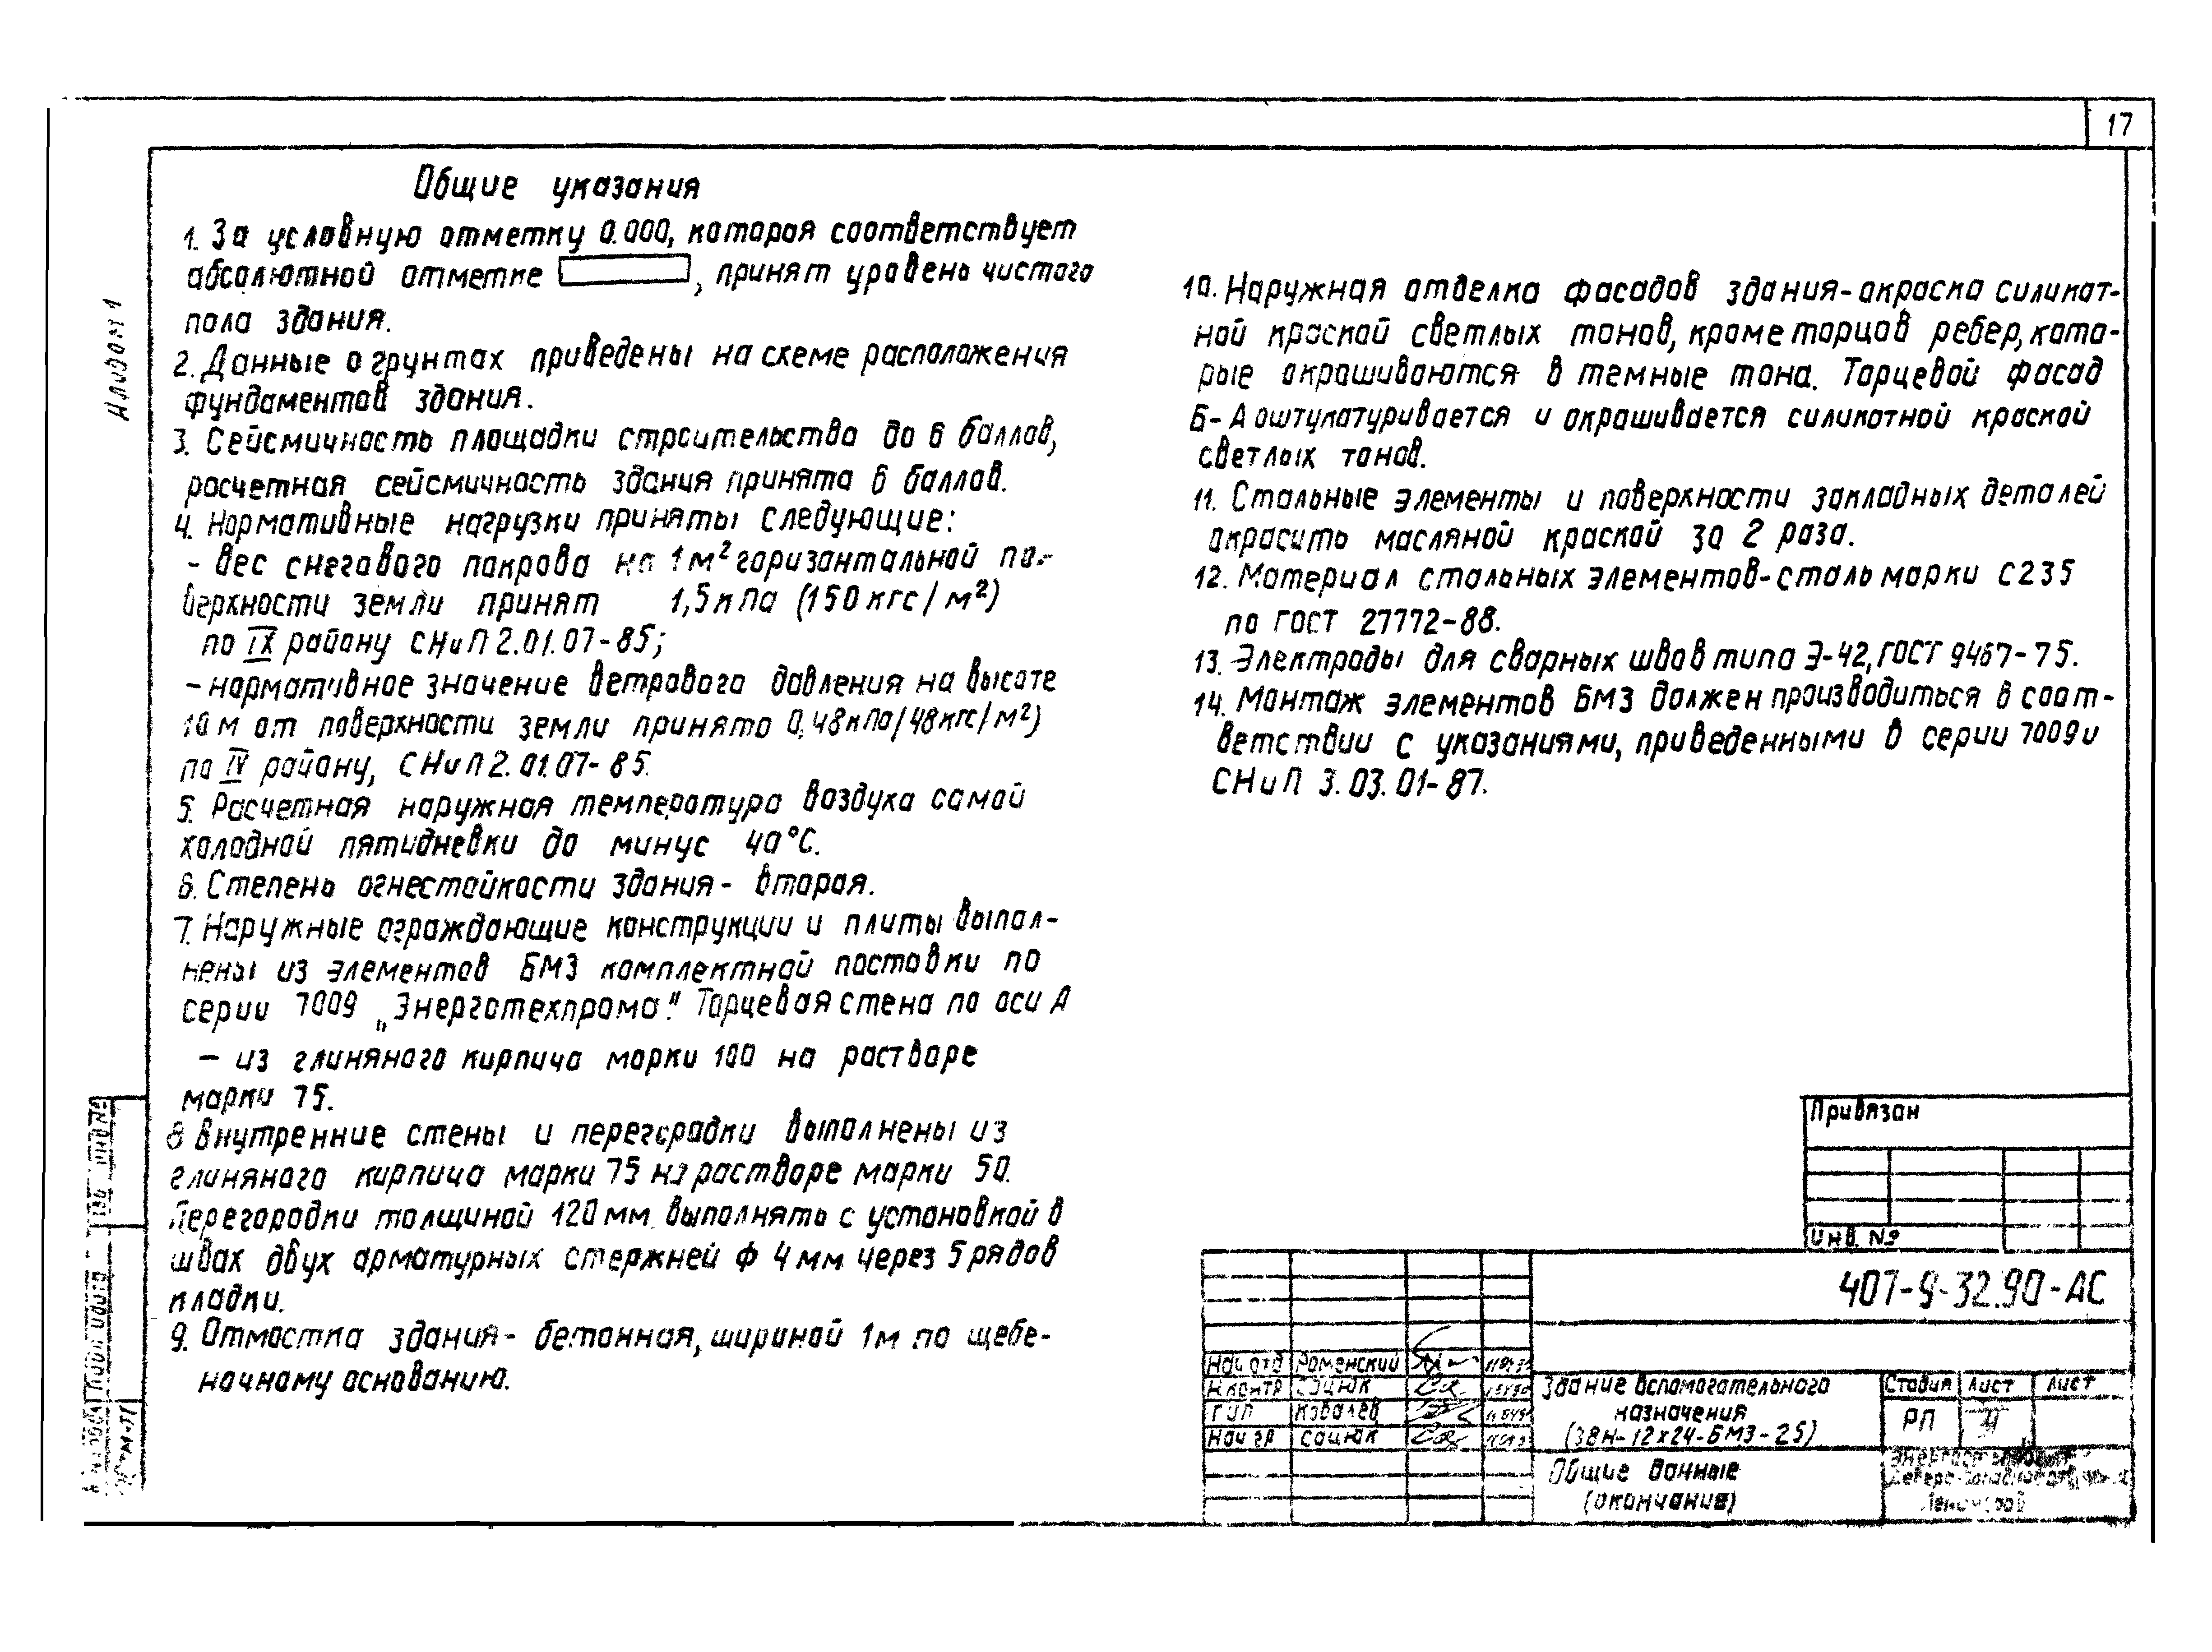 17
Альбом 1
Общие указания
1. За условную отметку 0.000, которая соответствует
абсолютной отметке , принят уровень чистого
пола здания.
2. Данные о грунтах приведены на схеме расположения
фундаментов здания.
3. Сейсмичность площадки строительства до 6 баллов,
расчетная сейсмичность здания принята 6 баллов.
4. Нормативные нагрузки приняты следующие:
- вес снегового покрова на 1 м² горизонтальной по-
верхности земли принят 1,5 кПа (150 кгс/м²)
по IX району СНиП 2.01.07-85;
- нормативное значение ветрового давления на высоте
10 м от поверхности земли принято 0,48 кПа (48 кгс/м²)
по IV району, СНиП 2.01.07-85.
5. Расчетная наружная температура воздуха самой
холодной пятидневки до минус 40°С.
6. Степень огнестойкости здания - вторая.
7. Наружные ограждающие конструкции и плиты выпол-
нены из элементов БМЗ комплектной поставки по
серии 7009 „Энерготехпрома". Торцевая стена по оси А
- из глиняного кирпича марки 100 на растворе
марки 75.
8 Внутренние стены и перегородки выполнены из
глиняного кирпича марки 75 на растворе марки 50.
Перегородки толщиной 120 мм выполнять с установкой в
швах двух арматурных стержней ф 4 мм через 5 рядов
кладки.
9. Отмостка здания - бетонная, шириной 1м по щебе-
ночному основанию.
10. Наружная отделка фасадов здания - окраска силикат-
ной краской светлых тонов, кроме торцов ребер, кото-
рые окрашиваются в темные тона. Торцевой фасад
Б-А оштукатуривается и окрашивается силикатной краской
светлых тонов.
11. Стальные элементы и поверхности закладных деталей
окрасить масляной краской за 2 раза.
12. Материал стальных элементов - сталь марки С235
по ГОСТ 27772-88.
13. Электроды для сварных швов типа Э-42, ГОСТ 9467-75.
14. Монтаж элементов БМЗ должен производиться в соот-
ветствии с указаниями, приведенными в серии 7009 и
СНиП 3.03.01-87.
Привязан
Инв. №
407-9-32.90-АС
Нач отд Роменский
Н.контр Сацюк
ГИП Ковалев
Нач гр Сацюк
Здание вспомогательного
назначения
(ЗВН-12х24-БМЗ-25)
Стадия Лист Лист
РП 4
Общие данные
(окончание)